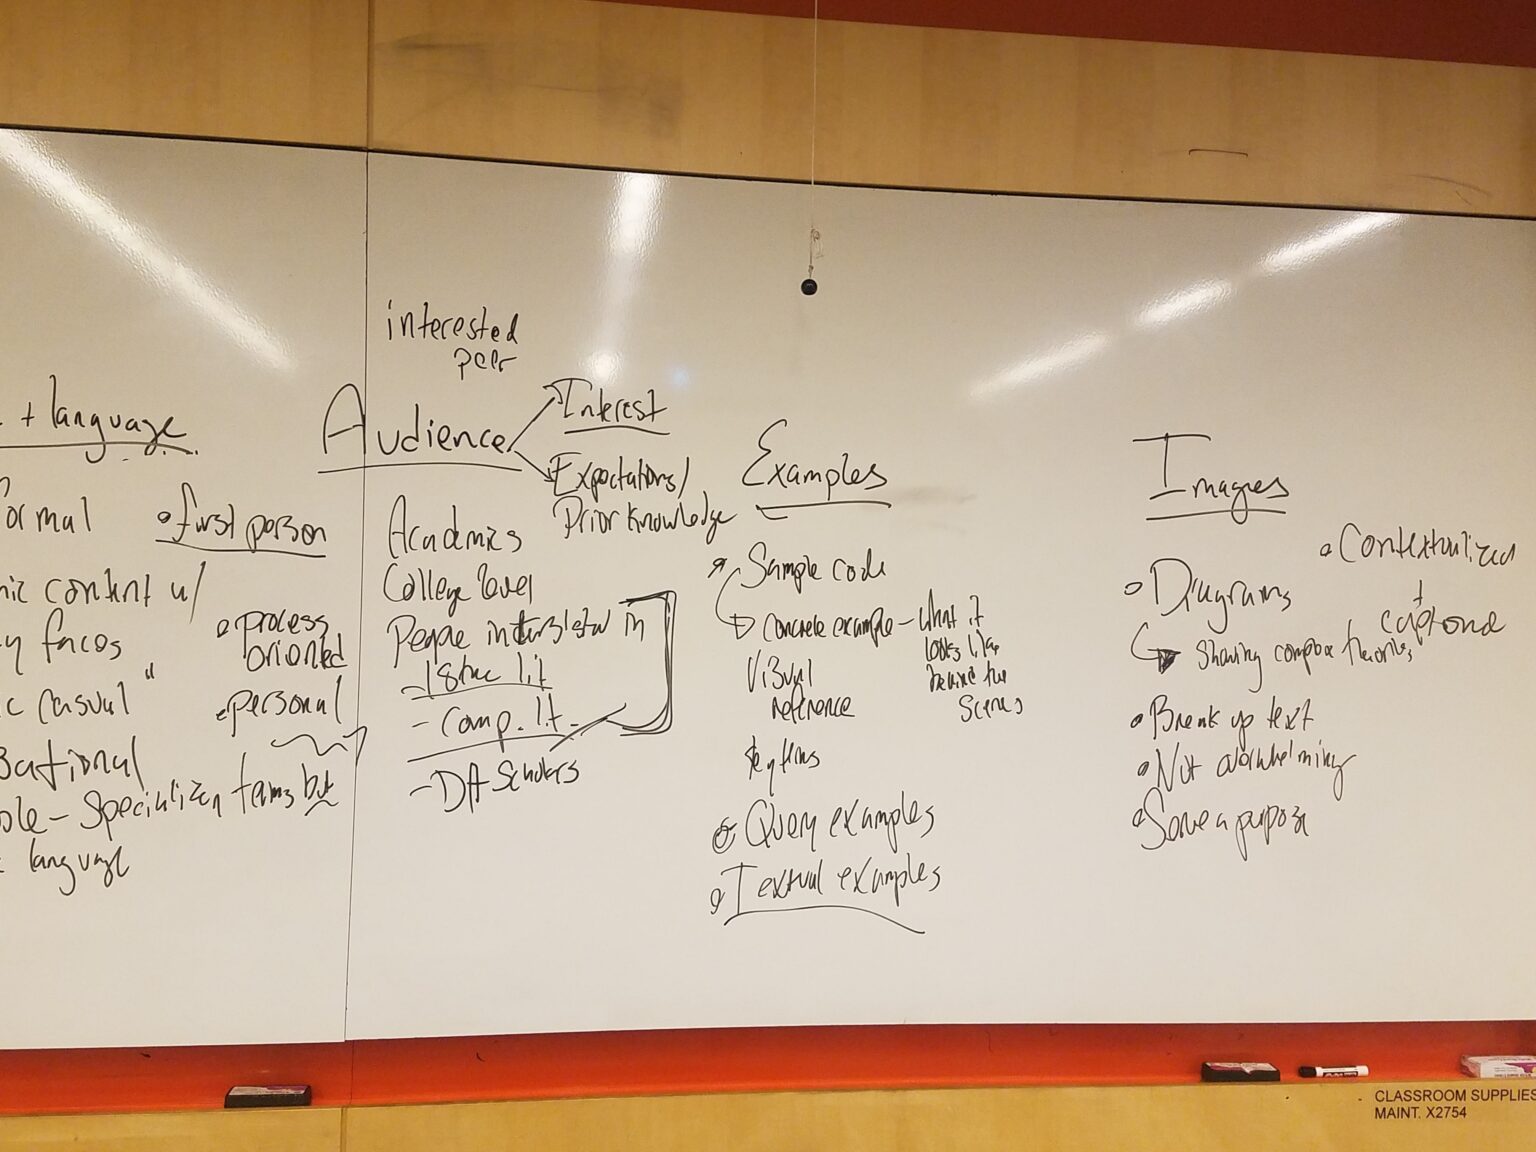 + language
ormal
• first person
content w/
faces
• process
oriented
casual"
• personal
ational
- Specialized terms but
language
interested
peer
Audience
Interest
Expectations/
Prior Knowledge
Academics
College level
People interested in
- 18thc lit
- Comp. lit
- DH Scholars
Examples
• Sample code
concrete example - what it
looks like
behind the
scenes
Visual
reference
Key terms
• Query examples
• Textual examples
Images
• Contextualized
+
captioned
• Diagrams
showing complex theories
• Break up text
• Not overwhelming
• Serve a purpose
CLASSROOM SUPPLIES
MAINT. X2754